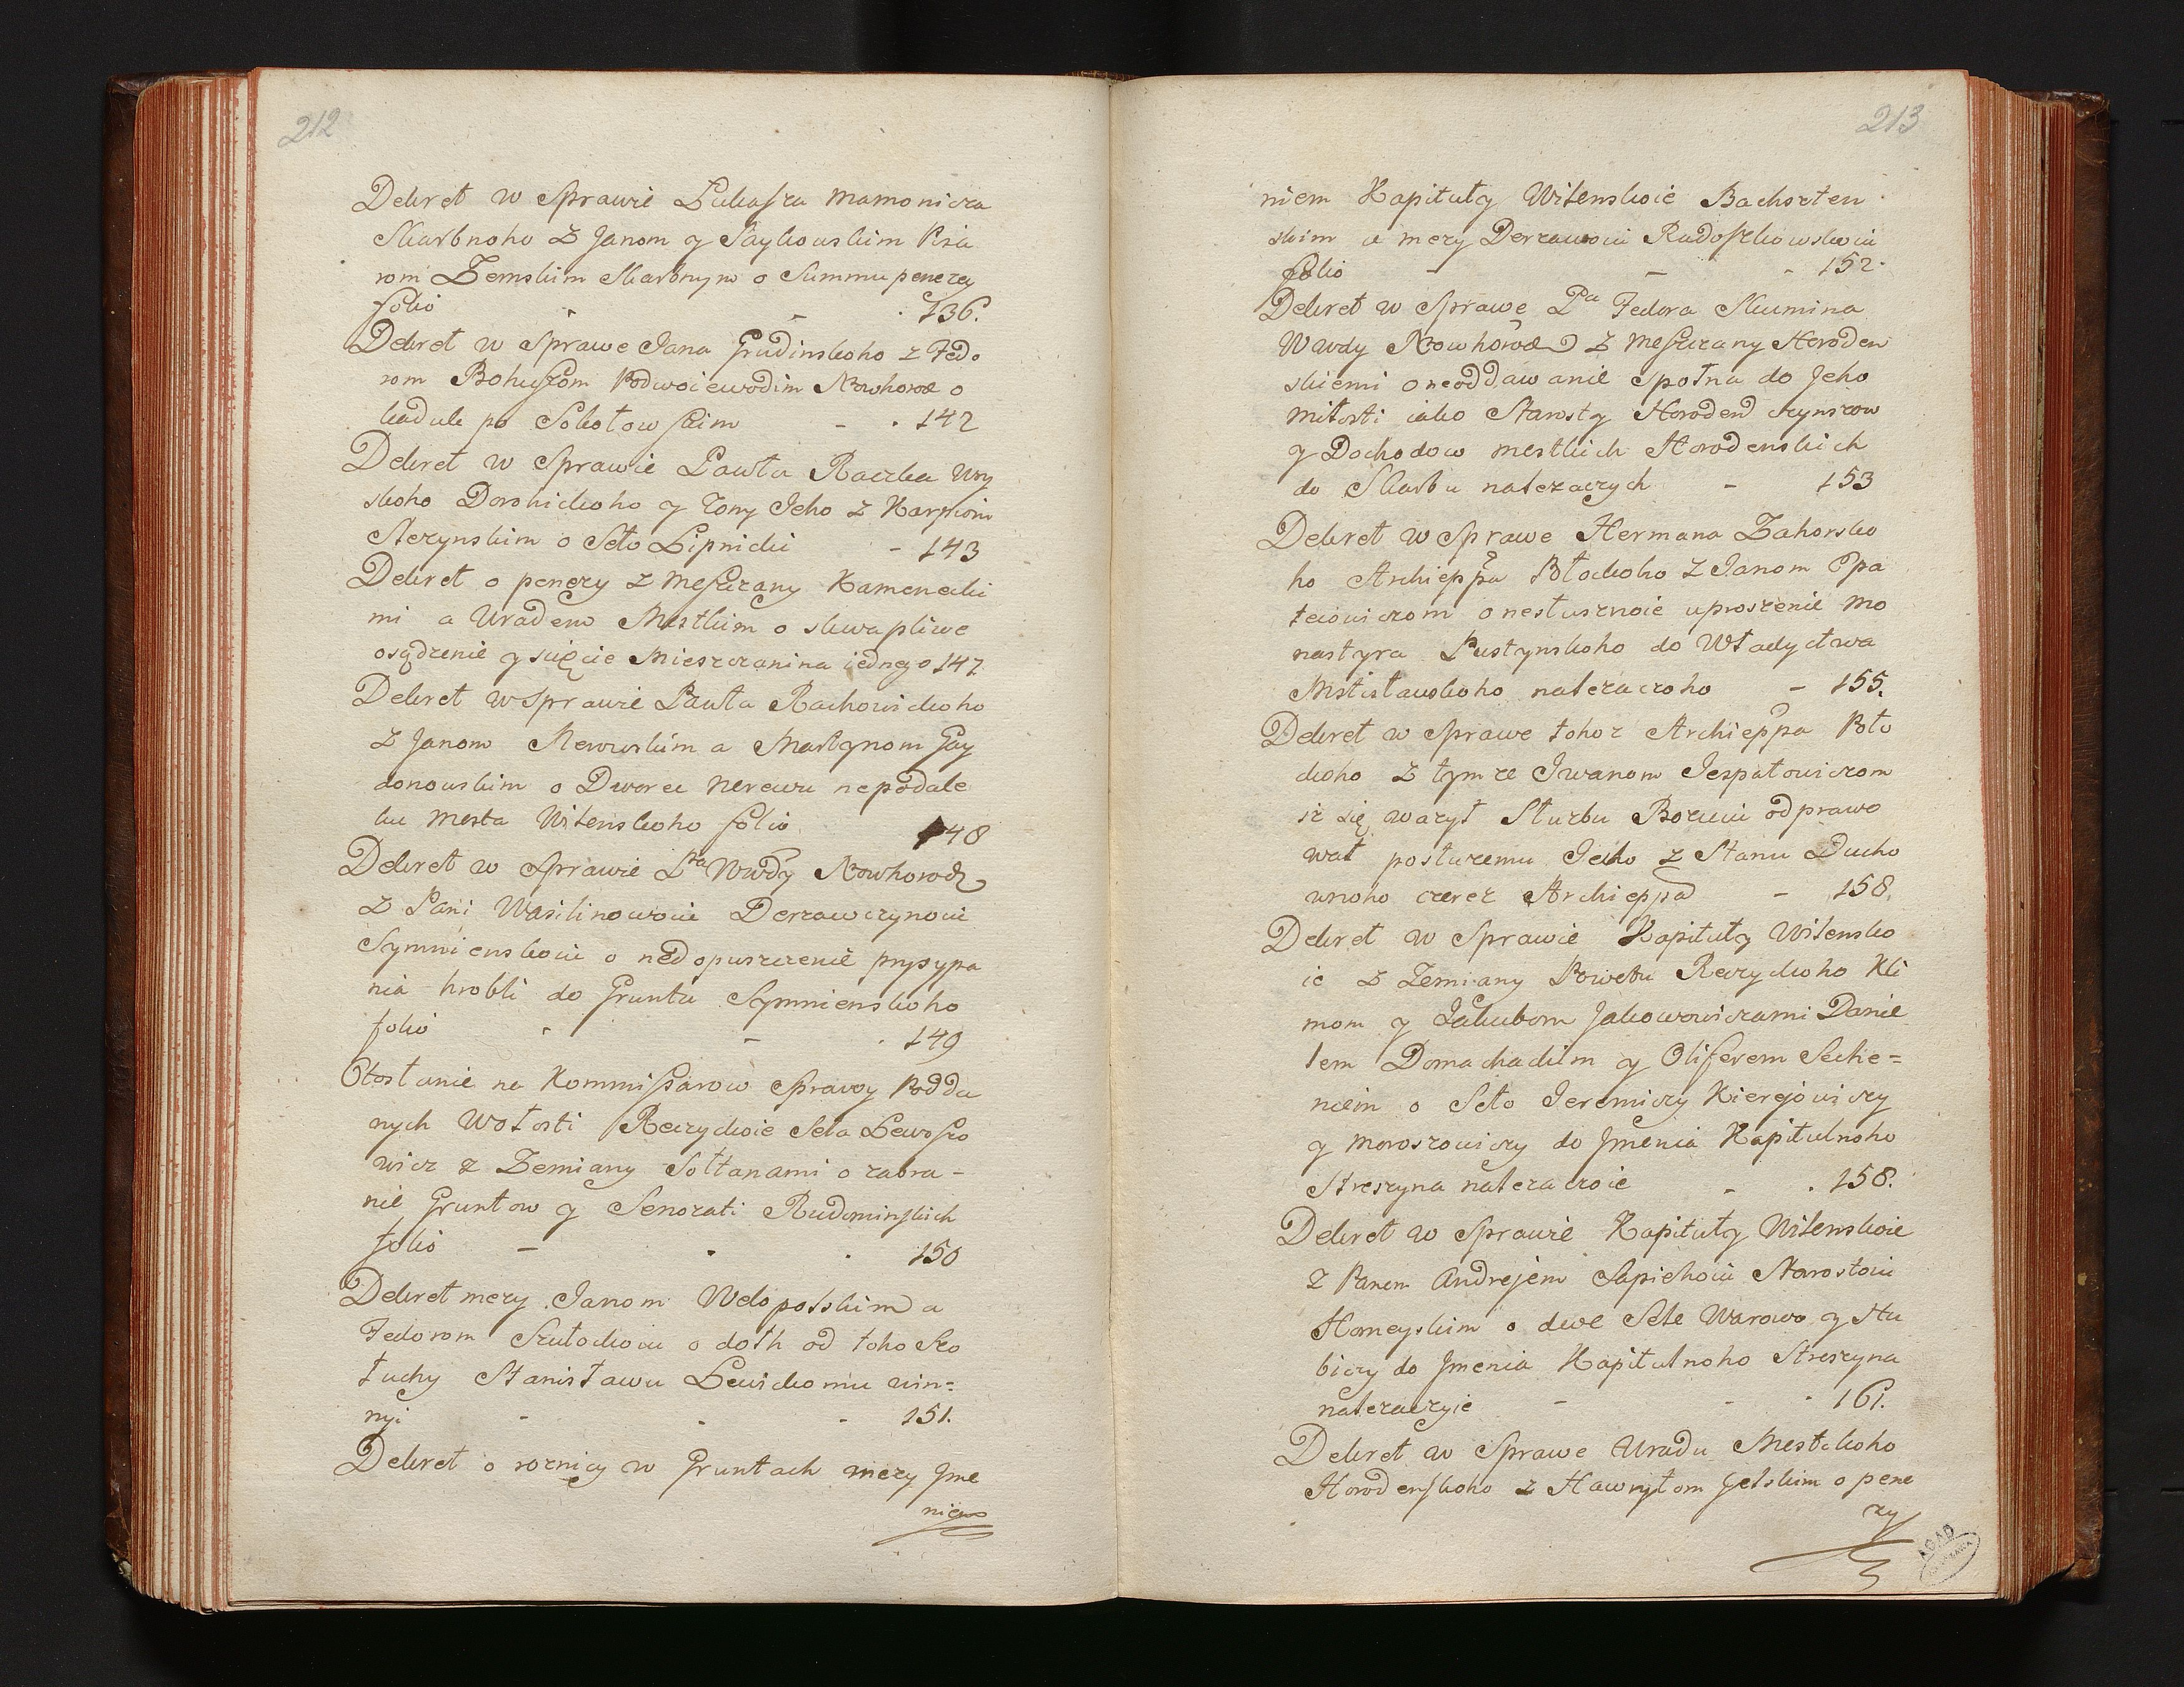 212
Dekret w Sprawie Łukasza Mamonicza
Skarbnoho z Janom y Saykouskim Pisa
rom Zemskim Skarbnym o Summu penezey
folio - - . 136.
Dekret w Sprawe Jana Hrudinskoho z Fedo
rom Bohuszom Podwoiewodim Nowhorod o
kaduk po Sokołowskim - . 142
Dekret w Sprawie Pawła Raczka Woy
skoho Dorohickoho y Zony Jeho z Karpiom
Steczynskim o Seło Lipnicki - 143
Dekret o penezy z Meszczany Kamenecki
mi a Uradem Mestkim o skwapliwe
osądzenie y scięcie Mieszczanina iednego 147
Dekret w Sprawie Pawła Rachowickoho
z Janom Newerskim a Martynom Gay
donouskim o Dworec Nerewu nepodale
ku Mesta Wilenskoho folio 148
Dekret w Sprawie Pna Wwdy Nowhorodz
z Pani Wasilinowoiu Derzawczynoiu
Symnienskoiu o nedopuszczenie prysypa
nia hrobli do Gruntu Symnienskoho
folio - - . 149
Otosłanie na Kommissarow Sprawy Podda
nych Wołosti Reczyckoie Sela Lewoszo
wicz z Zemiany Sołtanami o zabra-
nie Gruntow y Senozati Rudominskich
folio - . . 150
Dekret mezy Janom Welopolskim a
Fedorom Szułockoiu o dołh od toho Szo
łuchy Stanisławu Lewickomu win=
nyi - - - 151.
Dekret o roznicy w Gruntach mezy Jme
niem
213
niem Kapituły Wilenskoie Bachszten
skim a mezy Derzawoiu Radoszkowskoiu
folio - - - 152.
Dekret w Sprawe Pa Fedora Skumina
Wwdy Nowhorod z Meszczany Horoden
skiemi o neoddawanie społna do Jeho
Miłosti iako Starosty Horoden czynszow
y Dochodow mestkich Horodenskich
do Skarbu nalezaczych - 153
Dekret w Sprawe Hermana Zahorsko
ho Archieppa Połockoho z Janom Ospa
łeiowiczom o nesłusznoie uproszenie Mo
nastyra Pustynskoho do Władyctwa
Mstisławskoho nalezaczoho - 155.
Dekret w Sprawe tohoz Archieppa Poło
ckoho z tymze Jwanom Jespałowiczom
iz się wazył Słuzbu Bozuiu odprawo
wat postuzemu Jeiho z Stanu Ducho
wnoho czerez Archieppa - 158.
Dekret w Sprawie Kapituły Wilensko
ie z Zemiany Powetu Reczyckoho Kli
mom y Jakubom Jakowowiczami Danie
lem Domachackim y Oliferem Seche=
niem o Seło Jeremiczy Kierejowiczy
y Moroszowiczy do Jmenia Kapitulnoho
Streszyna nalezaczoie - . 158.
Dekret w Sprawie Kapituły Wilenskoie
z Panem Andrejem Sapiehoiu Starostoiu
Homeyskim o dwe Sele Warowo y Stu
biczy do Jmenia Kapitulnoho Streszyna
nalezaczyie - - 161.
Dekret w Sprawe Uradu Mestckoho
Horodenskoho z Hawryłom Gelskim o pene
zy
AGAD
WARSZAWA